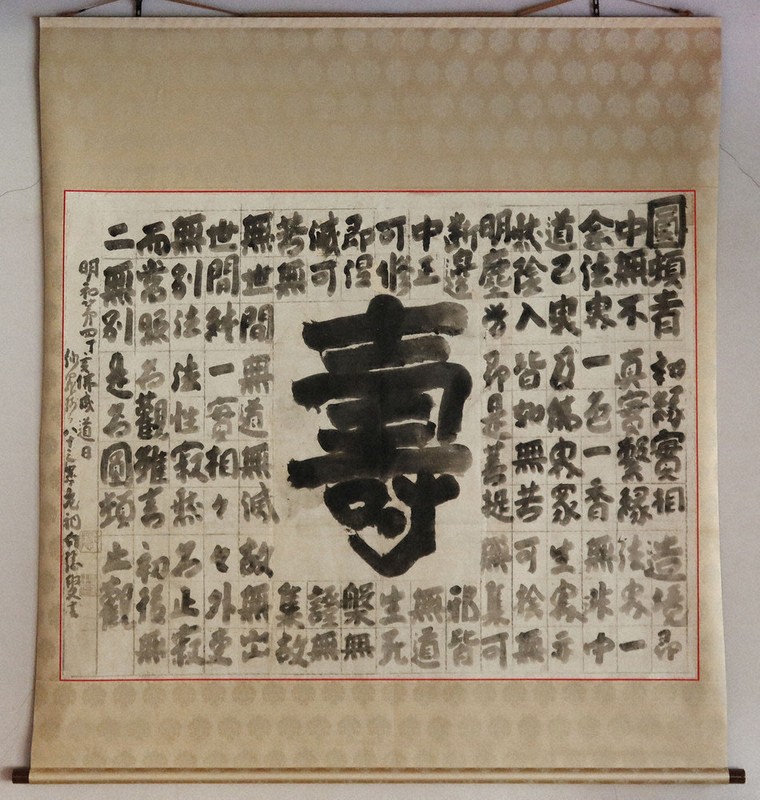 圓頓者初縁實相造境即
中無不真實繫縁法界一
念法界一色一香無非中
道己界及佛界衆生界亦
然陰入皆如無苦可捨無
明塵勞即是菩提無集可
斷邊邪皆
中正無道
可修生死
即涅槃無
滅可證無
苦無集故
壽
無世間無道無滅故無出
世間純一實相々々外更
無別法法性寂然名止寂
而常照名觀雖言初後無
二無別是名圓頓止觀
明和第四丁亥佛成道日
沙羅樹下八十三歳老衲白隱叟書